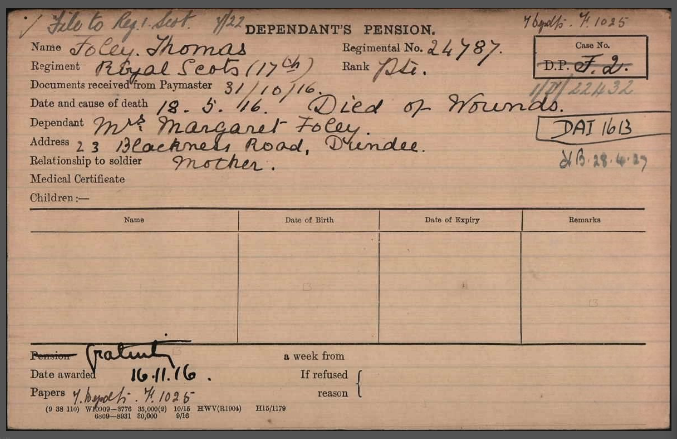 File to Reg. 1. Scot. 7/22
DEPENDANT'S PENSION.
F. 1025
Name Foley. Thomas
Regimental No. 24787.
Case No.
Regiment Royal Scots (17th)
Rank Pte.
D.P. F. 2.
Documents received from Paymaster 31/10/16.
1/D/22432
Date and cause of death 18. 5. 16. Died of Wounds.
Dependant Mrs Margaret Foley.
DAI 161B
Address 23 Blackness Road, Dundee.
Relationship to soldier Mother.
Medical Certificate
Children:—
Name Date of Birth Date of Expiry Remarks
Pension Gratuity a week from
Date awarded 16.11.16. If refused
Papers F. 1025 reason
(9 38 110) W12009—3776 35,000(2) 10/15 HWV(R1904) H15/1179
6809—8931 20,000 9/16